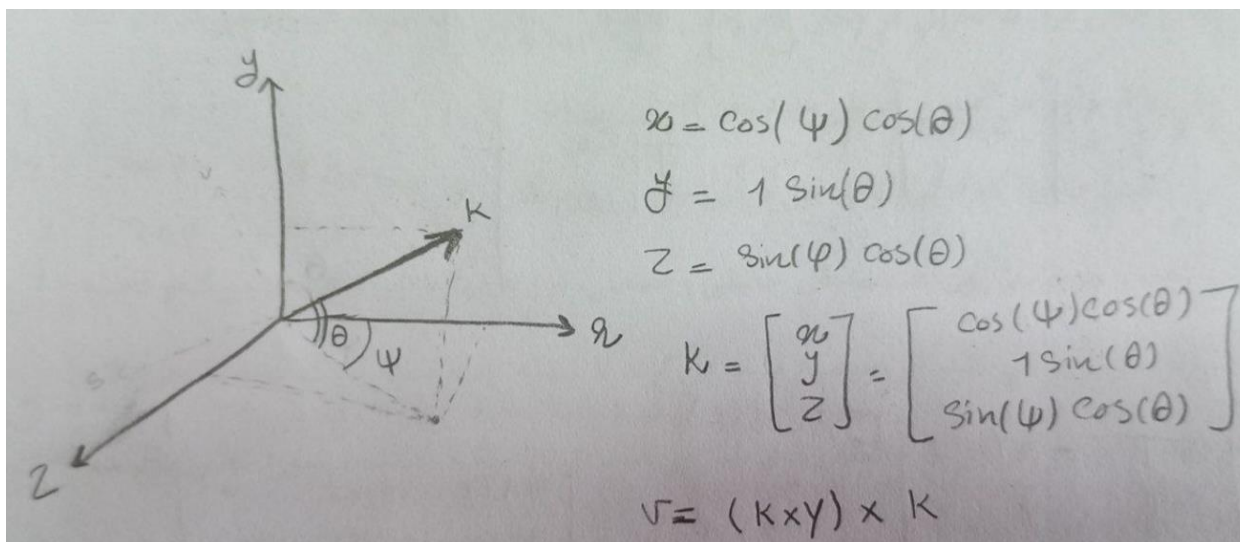 y
K
θ
ψ
x
z
x = cos(ψ) cos(θ)
y = 1 sin(θ)
z = sin(ψ) cos(θ)
K = [x y z] = [cos(ψ)cos(θ) 1 sin(θ) sin(ψ) cos(θ)]
v = (K×y) × K